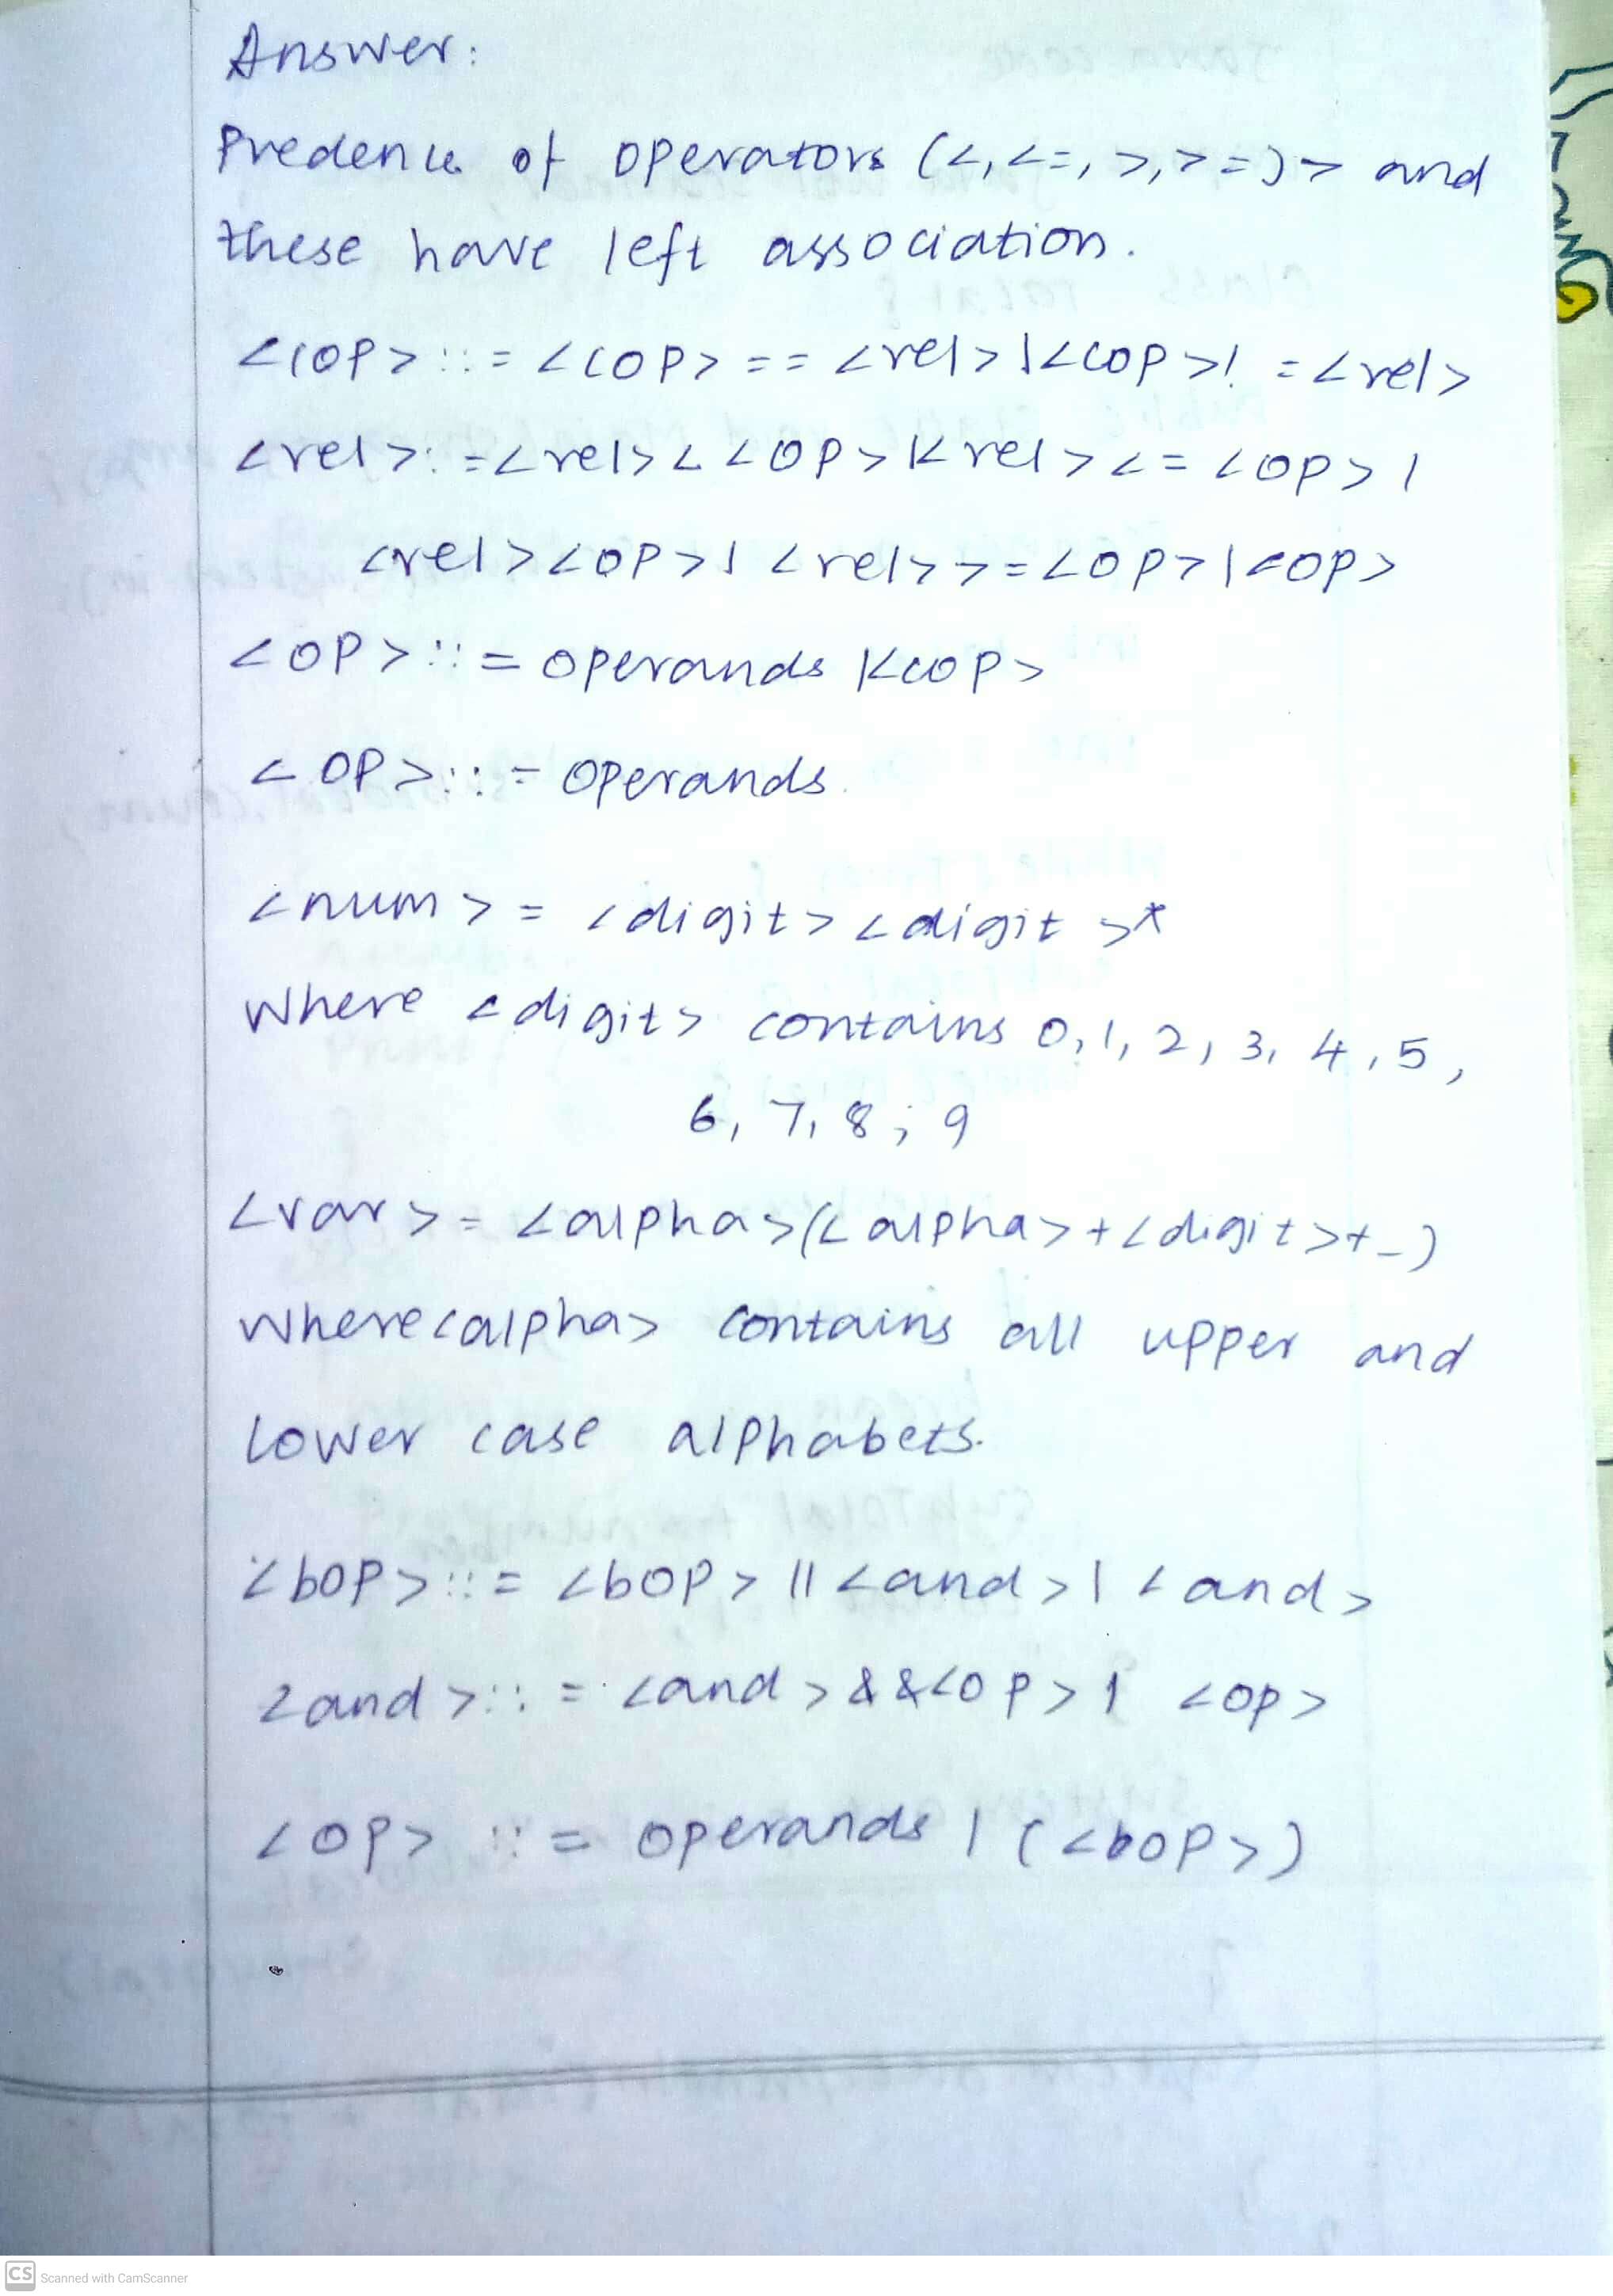 Answer:
Predence of operators (<,<=,>,>=)> and
these have left association.
<cop>::=<cop> == <rel>|<cop>! =<rel>
<rel>:=<rel>< <op>|<rel><= <op>|
<rel><op>|<rel>>=<op>|<op>
<op>::= operands |<cop>
<op>::= operands
<num>= <digit><digit>*
where <digit> contains 0,1,2,3,4,5,
6,7,8,9
<var>= <alpha>(<alpha>+<digit>+_)
where<alpha> contains all upper and
lower case alphabets.
<bop>::= <bop> || <and>| <and>
<and>::= <and>&&<op>| <op>
<op> ::= operands | (<bop>)
CS Scanned with CamScanner